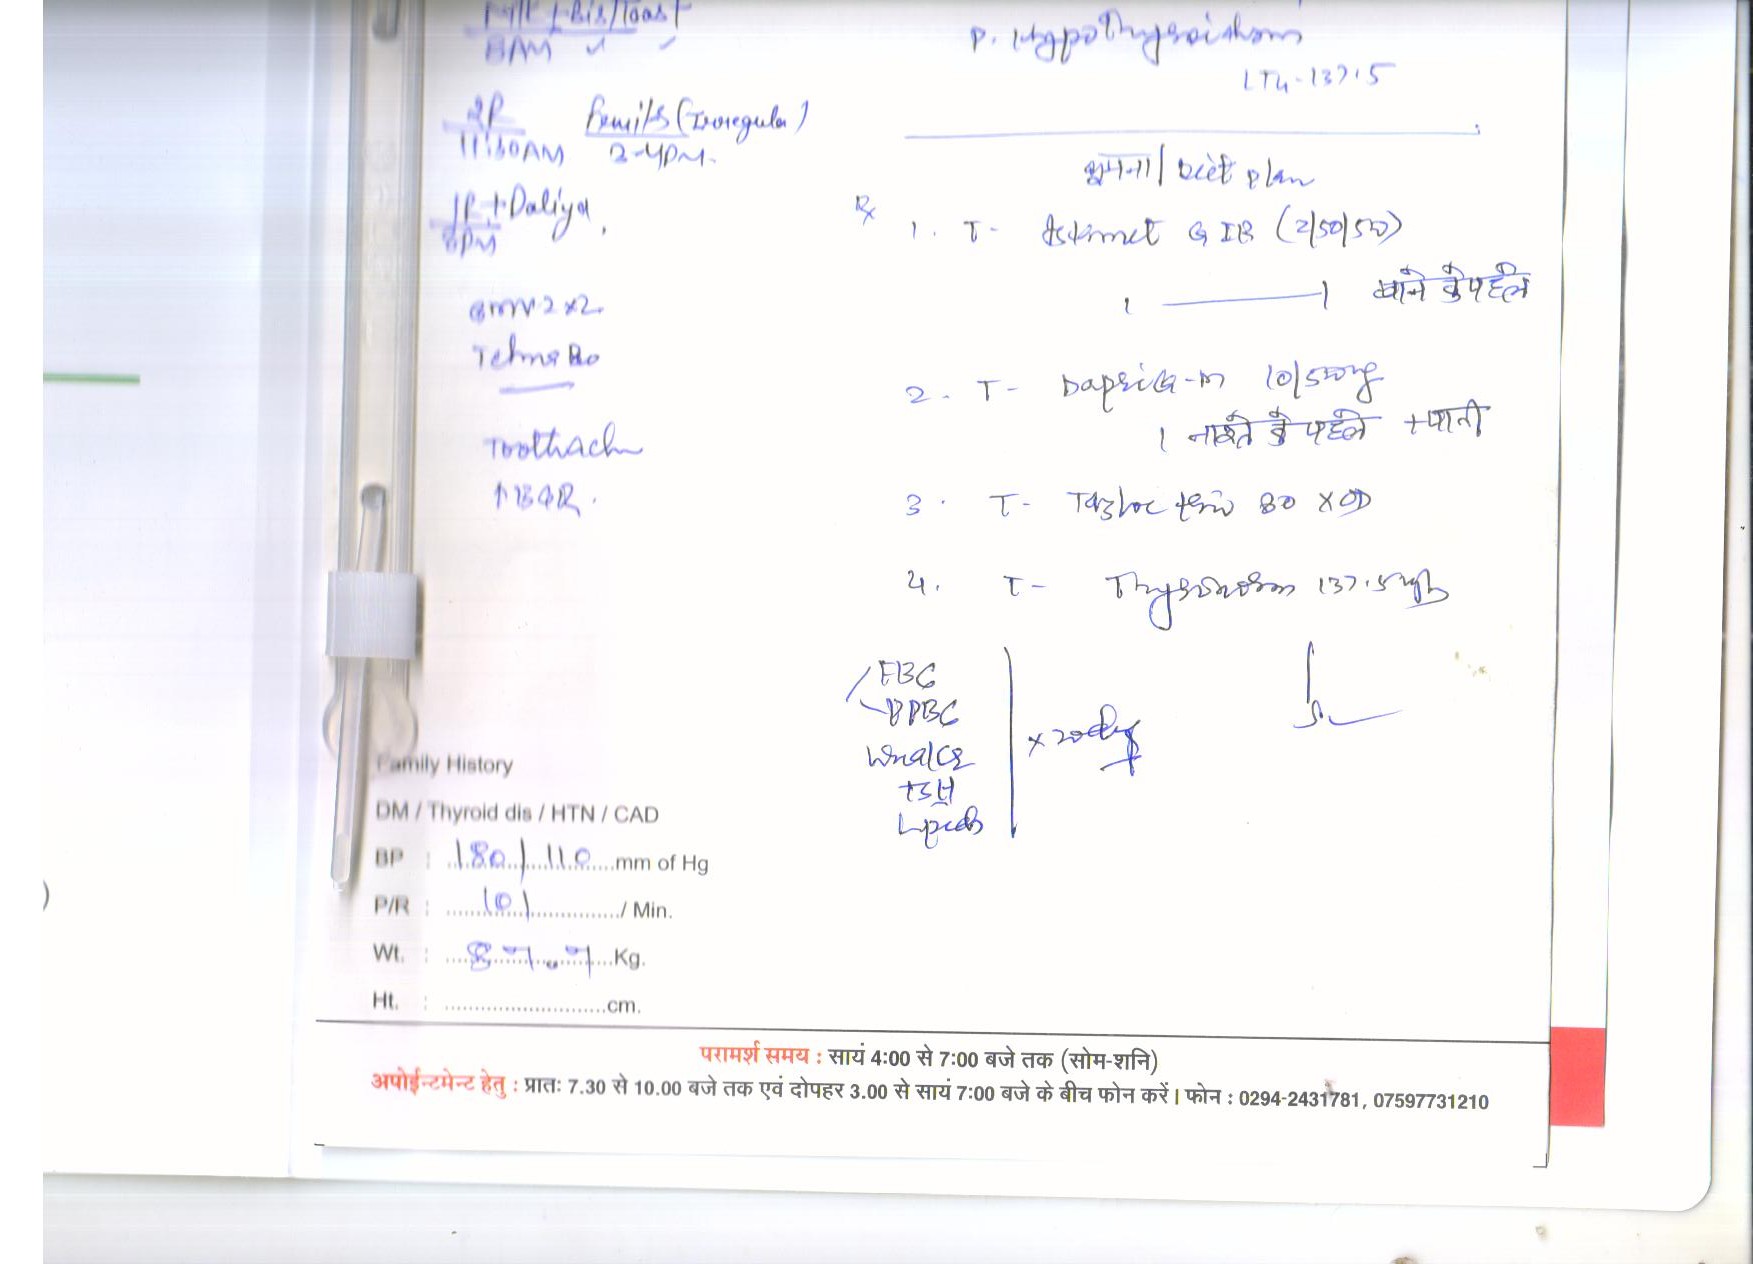 Milk + Bis/Toast
8AM
P. Hypothyroidism
LT4-137.5
2R
11:30AM
Fruits (Irregular)
2-4PM.
घूमना / Diet plan
1R + Daliya,
8PM
Rx
1. T- G IB (2/50/500)
1 ———— 1 खाने के पहले
GMV 2 x2
Telma 80
2. T- 10/500mg
1 नाश्ते के पहले + पानी
Toothach
3. T- Tazloc trio 80 X OD
4. T- Thyronorm 137.5
FBG
PPBG
TSH
Lipids
x 20 days
Family History
DM / Thyroid dis / HTN / CAD
BP : 180/110 mm of Hg
P/R : 101 / Min.
Wt. : 87.7 Kg.
Ht. : cm.
परामर्श समय : सायं 4:00 से 7:00 बजे तक (सोम-शनि)
अपोईन्टमेन्ट हेतु : प्रातः 7.30 से 10.00 बजे तक एवं दोपहर 3.00 से सायं 7:00 बजे के बीच फोन करें। फोन : 0294-2431781, 07597731210
)